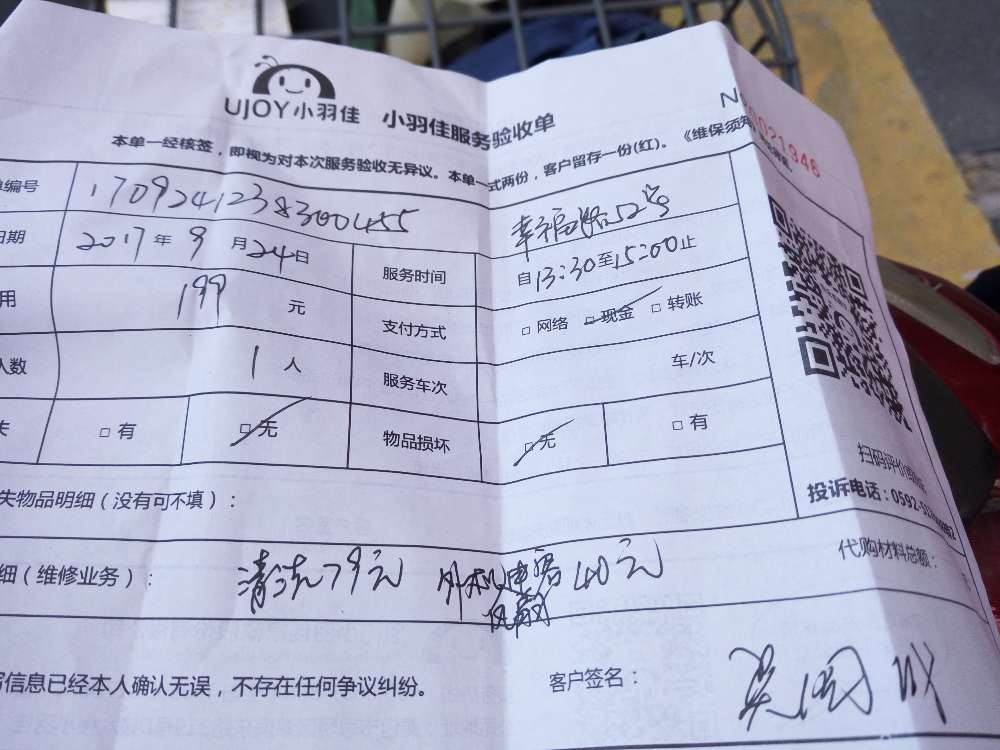 UJOY小羽佳 小羽佳服务验收单
本单一经核签，即视为对本次服务验收无异议。本单一式两份，客户留存一份(红)。《维保须知
编号 1709241238300455 幸福路52号
日期 2017年9月24日 服务时间 自13:30至15:00止
用 199 元 支付方式 □网络 □现金 □转账
人数 1人 服务车次 车/次
失 □有 □无 物品损坏 □无 □有
扫码评价
投诉电话：0592-5
失物品明细（没有可不填）：
代购材料总额：
细（维修业务）： 清洗79元 外机电容 40元
客户签名：
写信息已经本人确认无误，不存在任何争议纠纷。